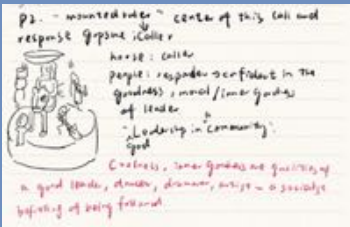 P2. - "mounted ruler" center of this call and
response
horse: caller
people: responder → confident in the
goodness, moral/inner goodness
of leader
"Leadership in community"
good
Coolness, inner goodness are qualities of
a good leader, dancer, drummer, artist - a socialize
of being followed.